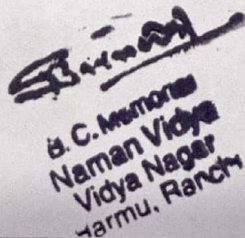 B. C. Memorial
Naman Vidya
Vidya Nagar
Harmu, Ranchi